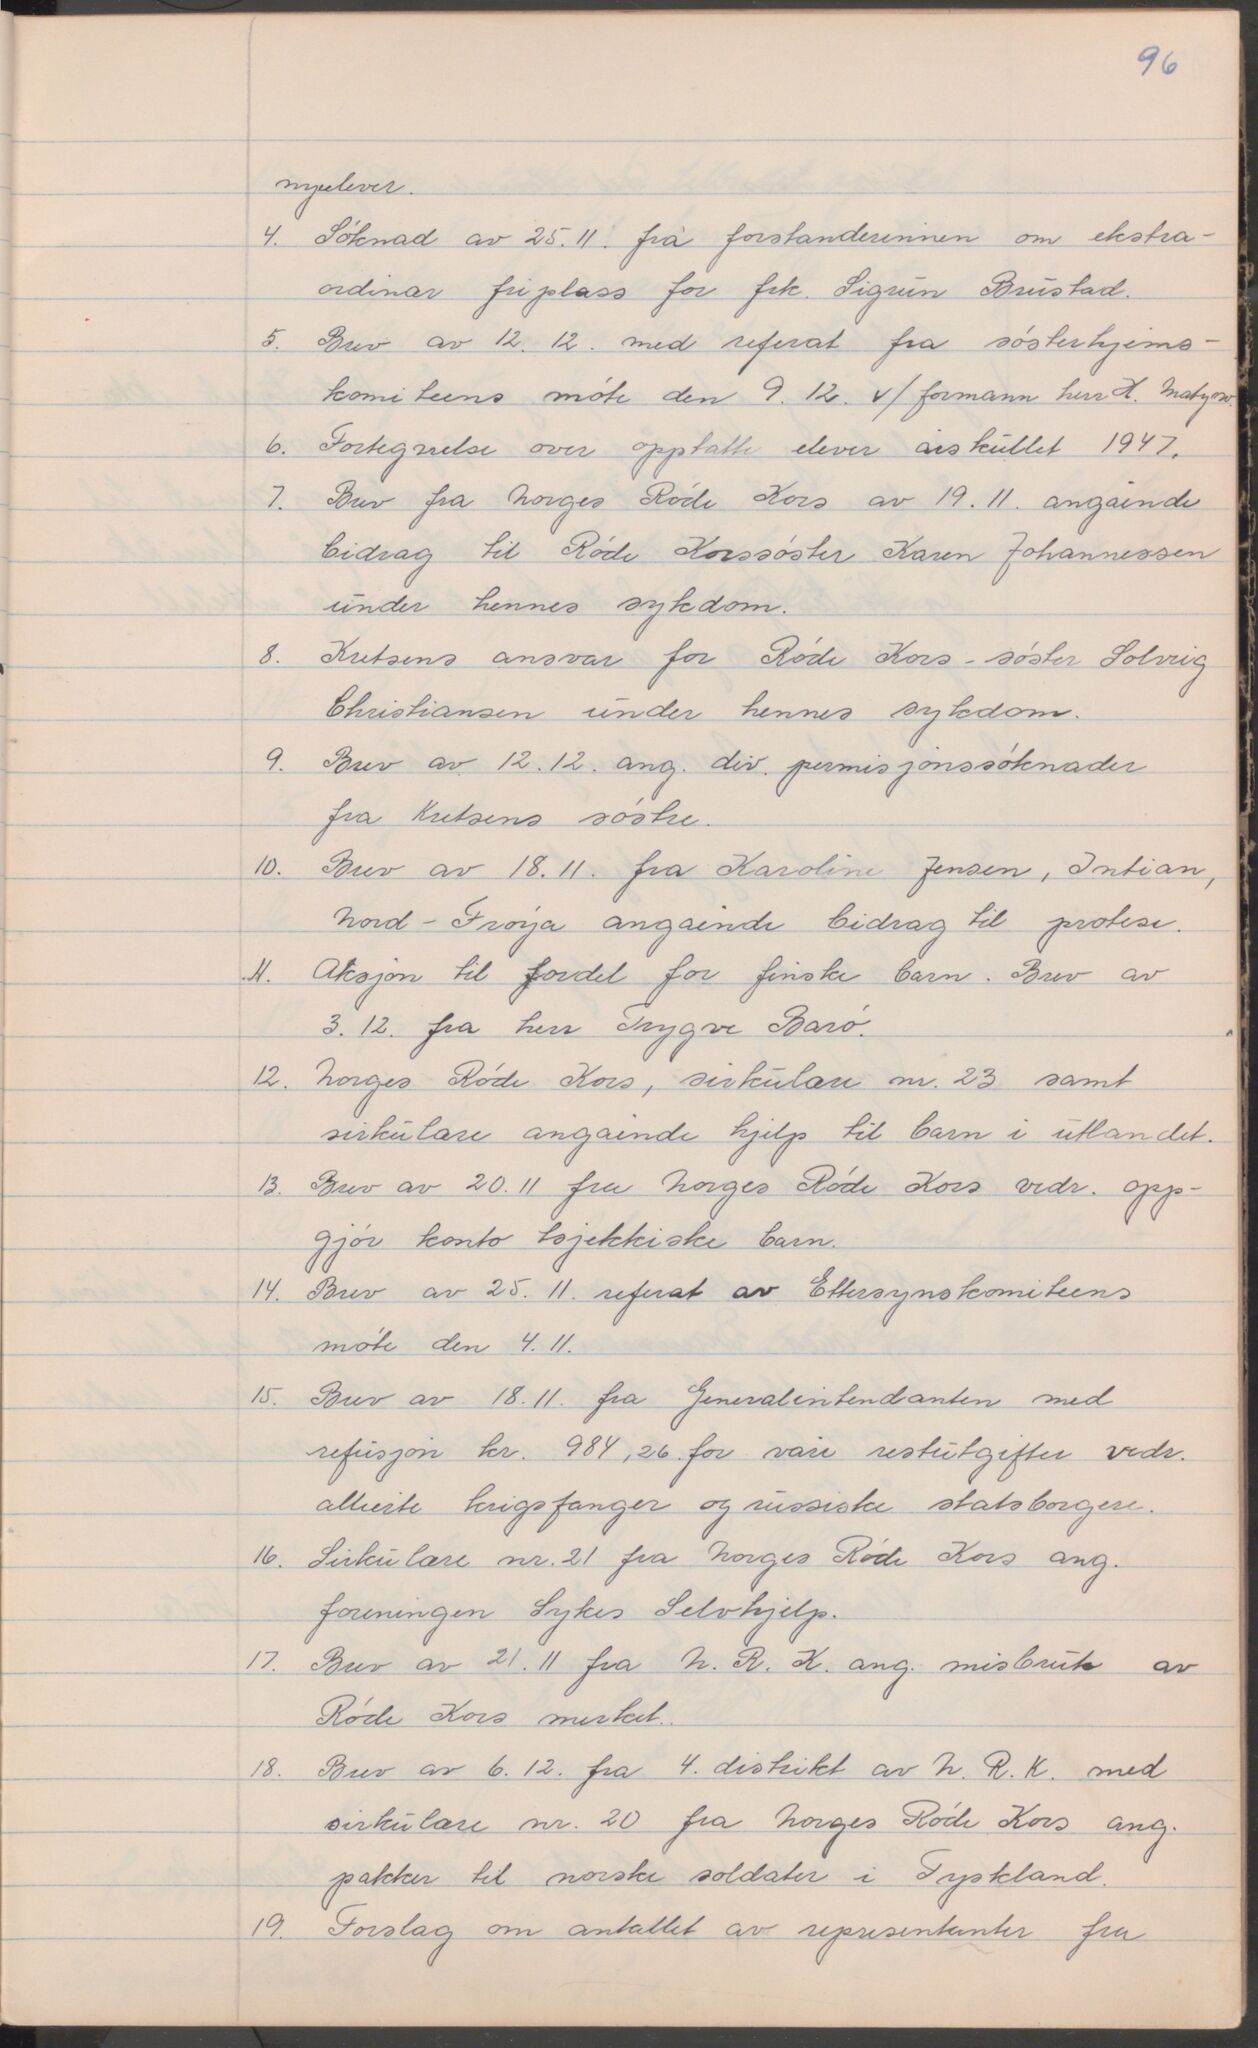 96
nyelever.
4. Söknad av 25.11. frå forstanderinnen om ekstra-
ordinær friplass for frk. Sigrun Brustad.
5. Brev av 12.12. med referat fra sösterhjems-
komiteens möte den 9.12. v/ formann herr H.
6. Fortegnelse over opptatte elever årskullet 1947.
7. Brev fra Norges Röde Kors av 19.11. angående
bidrag til Röde Korssöster Karen Johannessen
under hennes sykdom.
8. Kretsens ansvar for Röde Kors-söster Solveig
Christiansen under hennes sykdom.
9. Brev av 12.12. ang. div. permisjonssöknader
fra Kretsens söstre.
10. Brev av 18.11. fra Karoline Jensen, Intian,
Nord-Fröya angående bidrag til protese.
11. Aksjon til fordel for finske barn. Brev av
3.12. fra herr Trygve Barö.
12. Norges Röde Kors, sirkulære nr. 23 samt
sirkulære angående hjelp til barn i utlandet.
13. Brev av 20.11 fra Norges Röde Kors vedr. opp-
gjör konto tsjekkiske barn.
14. Brev av 25.11. referat av Ettersynskomiteens
möte den 4.11.
15. Brev av 18.11. fra Generalintendanten med
refusjon kr. 984,26 for våre restutgifter vedr.
allierte krigsfanger og russiske statsborgere.
16. Sirkulære nr. 21 fra Norges Röde Kors ang.
foreningen Sykes Selvhjelp.
17. Brev av 21.11 fra N. R. K. ang. misbruk av
Röde Kors merket.
18. Brev av 6.12. fra 4. distrikt av N. R. K. med
sirkulære nr. 20 fra Norges Röde Kors ang.
pakker til norske soldater i Tyskland.
19. Forslag om antallet av representanter fra